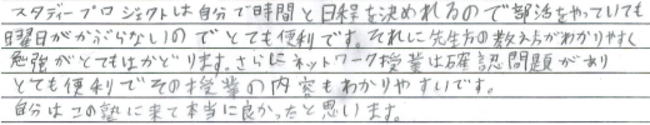 スタディープロジェクトは自分で時間と日程を決めれるので部活をやっていても
曜日がかぶらないのでとても便利です。それに先生方の教え方がわかりやすく
勉強がとてもはかどります。さらにネットワーク授業は確認問題があり
とても便利でその授業の内容もわかりやすいです。
自分はこの塾に来て本当に良かったと思います。